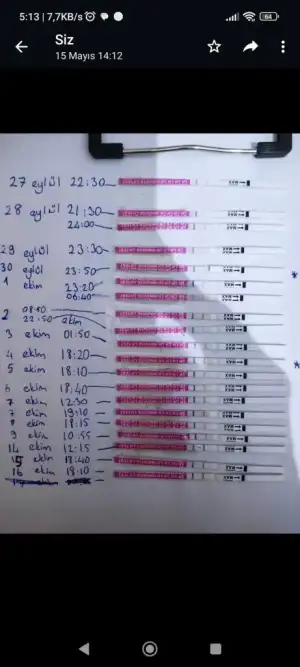 5:13 | 7,7KB/s
64
Siz
15 Mayıs 14:12
27 eylül 22:30
28 eylül 21:30
24:00
29 eylül 23:30
30 eylül 23:50
1 ekim 23:20
06:40
2 08:50
22:50 ekim
3 ekim 01:50
4 ekim 18:20
5 ekim 18:10
6 ekim 18:40
7 ekim 12:30
7 ekim 19:10
8 ekim 18:15
9 ekim 10:55
14 ekim 12:15
15 ekim 17:40
16 ekim 18:10